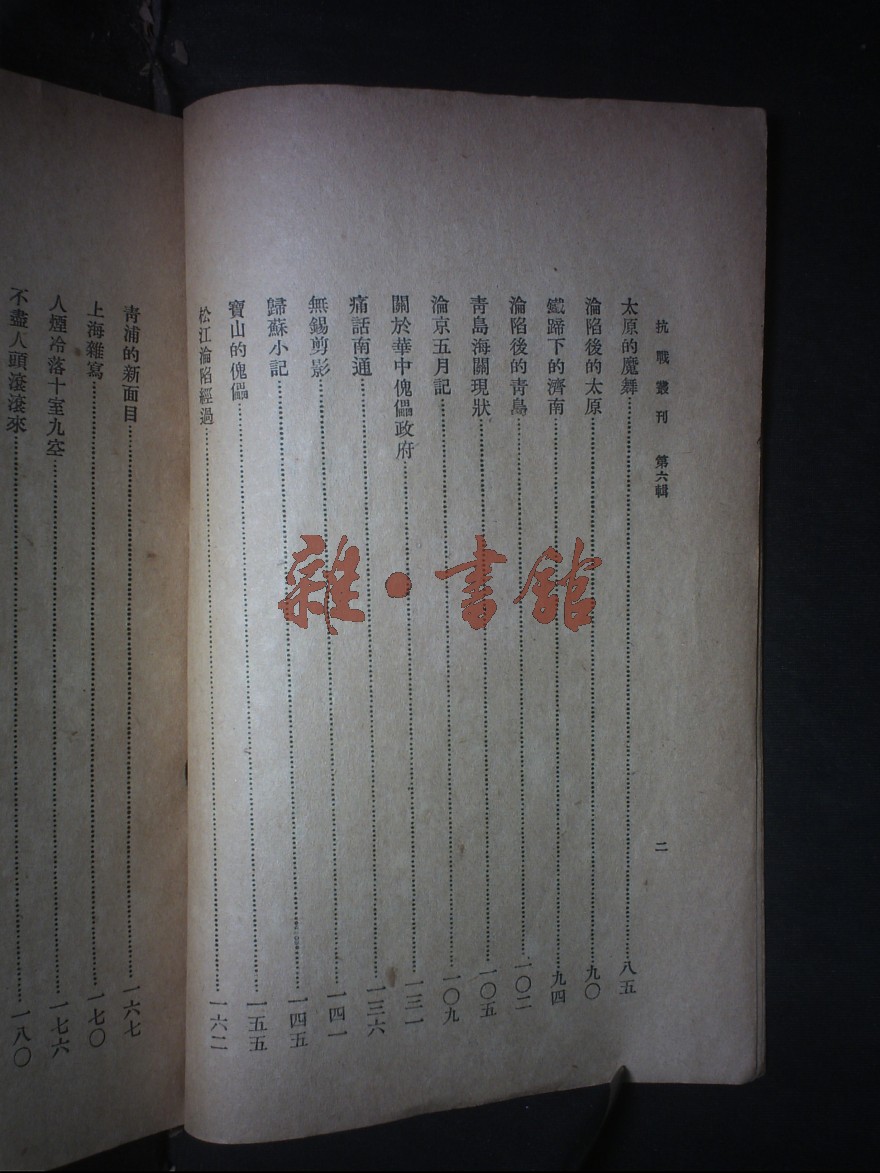 抗戰叢刊 第六輯 二
太原的魔舞……八五
淪陷後的太原……九〇
鐵蹄下的濟南……九四
淪陷後的青島……一〇二
青島海關現狀……一〇五
淪京五月記……一〇九
關於華中傀儡政府……一三一
痛話南通……一三六
無錫剪影……一四一
歸蘇小記……一四五
寶山的傀儡……一五五
松江淪陷經過……一六二
青浦的新面目……一六七
上海雜寫……一七〇
人煙冷落十室九空……一七六
不盡人頭滾滾來……一八〇
雜·書館